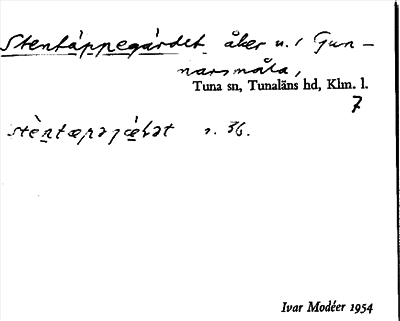 Stentäppegärdet, åker u. / Gun-
narsmåla,
Tuna sn, Tunaläns hd, Klm. l.
7
s. 36.
Ivar Modéer 1954